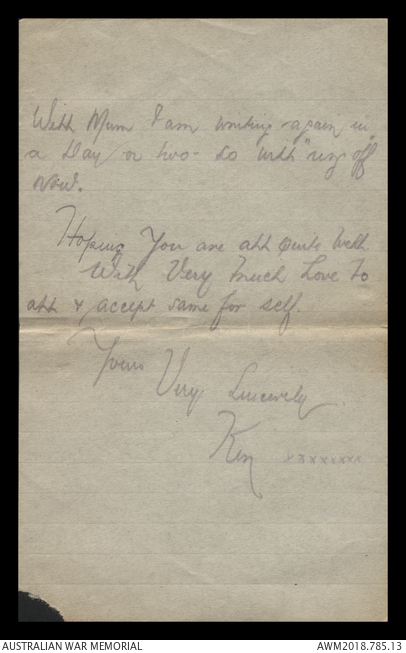 Well Mum I am writing again in
a Day or two - so will "ring off"
now.
Hoping You are all quite well
With Very Much Love to
all & accept same for self.
Yours Very Sincerely
Ken xxxxxxxx
AUSTRALIAN WAR MEMORIAL
AWM2018.785.13